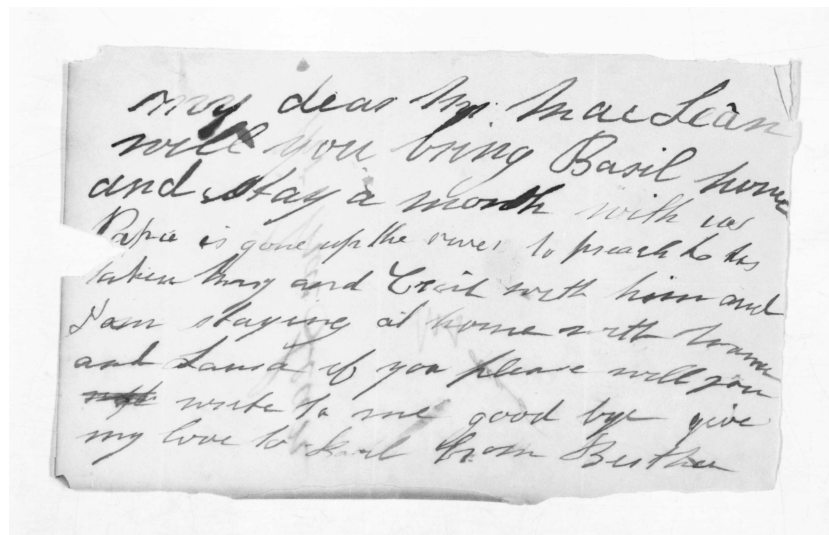 my dear Mr. MacLean
will you bring Basil home
and stay a month with us
Papa is gone up the river to preach he has
taken and Cecil with him and
I am staying at home with Mama
and Laura if you please will you
write to me good bye give
my love to from Bertha